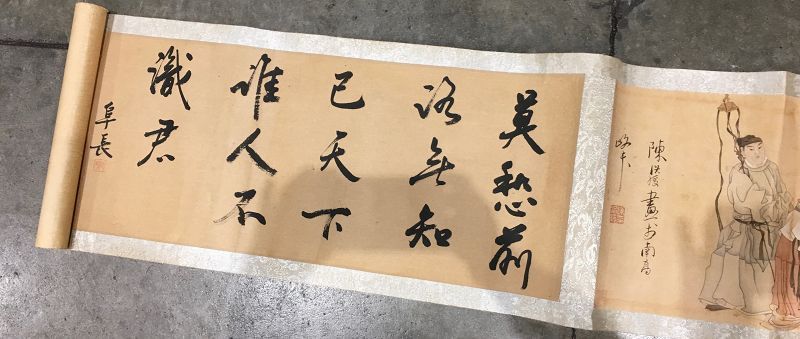 陳 畫於南
莫愁前
路無知
己天下
誰人不
識君
阜長